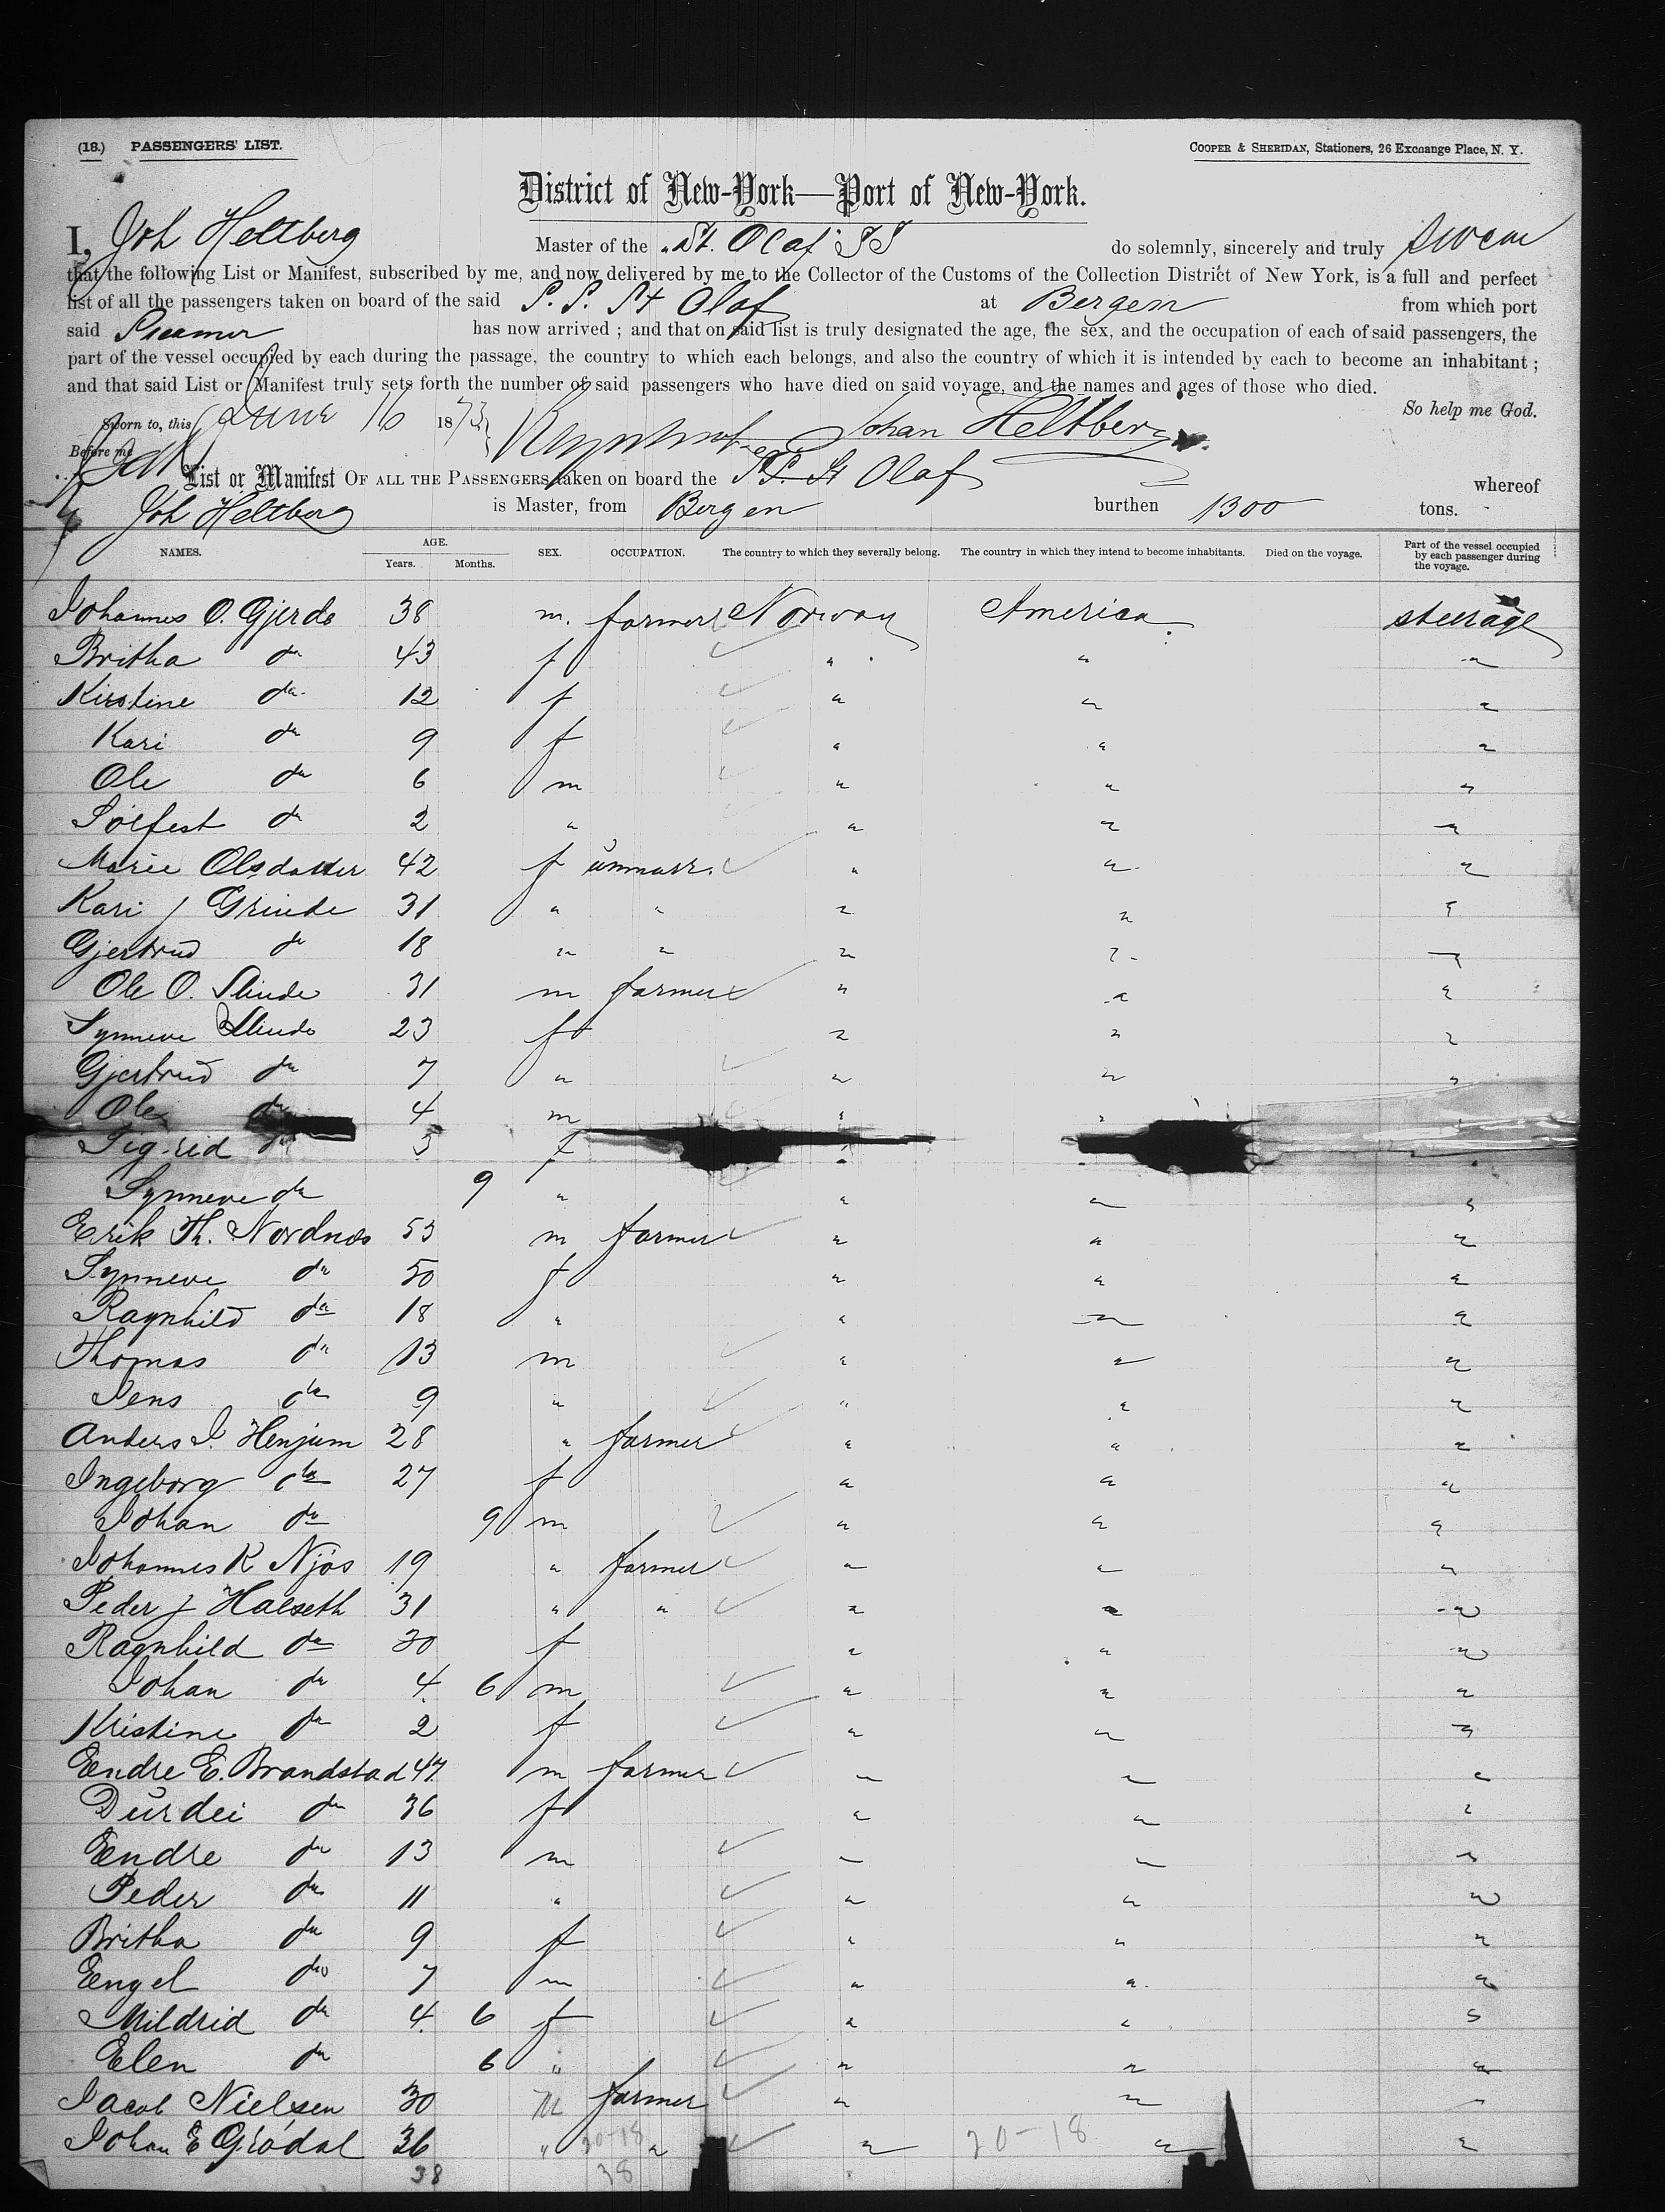 (18.) PASSENGERS' LIST. COOPER & SHERIDAN, Stationers, 26 Excnange Place, N. Y.
District of New-York—Port of New-York.
I, Joh Heltberg Master of the "St. Olaf" SS do solemnly, sincerely and truly swear
that the following List or Manifest, subscribed by me, and now delivered by me to the Collector of the Customs of the Collection District of New York, is a full and perfect
list of all the passengers taken on board of the said S. S. St Olaf at Bergen from which port
said Steamer has now arrived ; and that on said list is truly designated the age, the sex, and the occupation of each of said passengers, the
part of the vessel occupied by each during the passage, the country to which each belongs, and also the country of which it is intended by each to become an inhabitant ;
and that said List or Manifest truly sets forth the number of said passengers who have died on said voyage, and the names and ages of those who died.
So help me God.
Sworn to, this June 16 1873 Johan Heltberg
Before me
List or Manifest OF ALL THE PASSENGERS taken on board the S.S. St Olaf whereof
Joh Heltberg is Master, from Bergen burthen 1300 tons.
NAMES. AGE. Years. Months. SEX. OCCUPATION. The country to which they severally belong. The country in which they intend to become inhabitants. Died on the voyage. Part of the vessel occupied by each passenger during the voyage.
Johannes O. Gjerde 38 m. farmer Norway America steerage
Britha do 43 f " " "
Kirstine do 12 f " " "
Kari do 9 f " " "
Ole do 6 m " " "
Solfest do 2 " " " "
Marie Olsdatter 42 f unmarr. " " "
Kari J Grinde 31 " " " " "
Gjertrud do 18 " " " " "
Ole O. Slinde 31 m farmer " " "
Synneve Slinde 23 f " " "
Gjertrud do 7 " " " "
Ole do 4 m " " "
Sigrid do 3 f "
Synneve do 9 " " " "
Erik Th. Nordnes 53 m farmer " " "
Synneve do 50 f " " "
Ragnhild do 18 " " " "
Thomas do 13 m " " "
Jens do 9 " " " "
Anders I. Henjum 28 " farmer " " "
Ingeborg do 27 f " " "
Johan do 9 m " " "
Johannes K Njøs 19 " farmer " " "
Peder J Halseth 31 " " " " "
Ragnhild do 30 f " " "
Johan do 4 6 m " " "
Kristine do 2 f " " "
Endre E. Brandstad 47 m farmer " " "
Durdei do 36 f " " "
Endre do 13 m " " "
Peder do 11 " " " "
Britha do 9 f " " "
Engel do 7 m " " "
Mildrid do 4 6 f " " "
Elen do 6 " " " "
Jacob Nielsen 30 M farmer " " "
Johan E Grødal 36 " " " " "
20-18 20-18
38 38